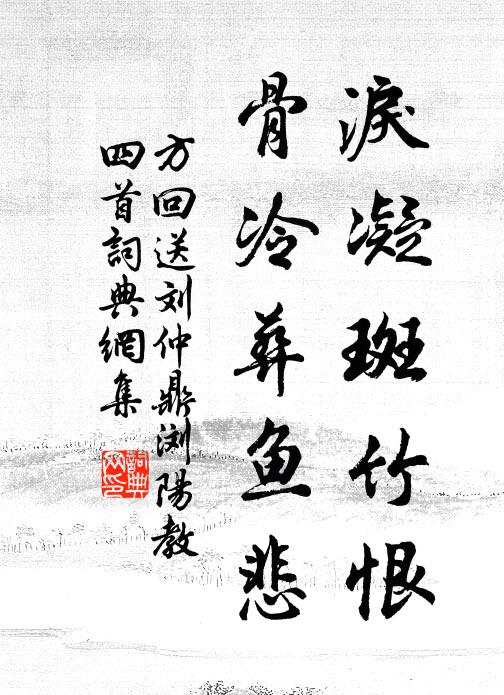 淚凝斑竹恨
骨冷葬鱼悲
方回送刘仲鼎浏陽教
四首詞典網集
詞典网印